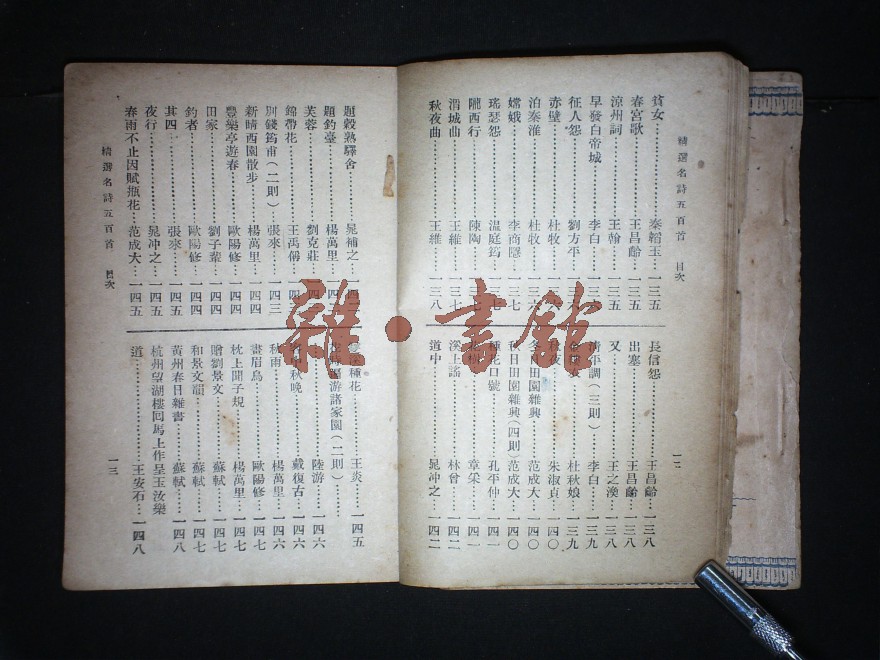 精選名詩五百首 目次
貧女 秦韜玉 一三五
春宮歌 王昌齡 一三五
涼州詞 王翰 一三五
早發白帝城 李白 一三六
征人怨 劉方平
赤壁 杜牧
泊秦淮 杜牧
嫦娥 李商隱 一三七
瑤瑟怨 溫庭筠
隴西行 陳陶
渭城曲 王維 一三七
秋夜曲 王維 一三八
長信怨 王昌齡 一三八
出塞 王昌齡 一三八
又 王之渙 一三八
清平調(三則) 李白 一三九
杜秋娘 一三九
朱淑貞 一四〇
田園雜興 范成大 一四〇
秋日田園雜興(四則) 范成大 一四〇
種花口號 孔平仲 一四一
章粢 一四一
溪上謠 林曾 一四二
道中 晁冲之 一四二
一二
題穀熟驛舍 晁補之
題釣臺 楊萬里
芙蓉 劉克莊
錦帶花 王禹偁
別錢筠甫(二則) 張來 一四三
新晴西園散步 楊萬里 一四四
豐樂亭遊春 歐陽修 一四四
田家 劉子翬 一四四
釣者 歐陽修 一四四
其四 張來 一四五
夜行 晁冲之 一四五
春雨不止因賦瓶花 范成大 一四五
精選名詩五百首 目次
種花 王炎 一四五
游諸家園(二則) 陸游 一四六
秋晚 戴復古 一四六
秋雨 楊萬里 一四六
畫眉鳥 歐陽修 一四七
枕上聞子規 楊萬里 一四七
贈劉景文 蘇軾 一四七
和景文韻 蘇軾 一四七
黃州春日雜書 蘇軾 一四八
杭州望湖樓回馬上作呈玉汝樂
道 王安石 一四八
一三
雜·書館